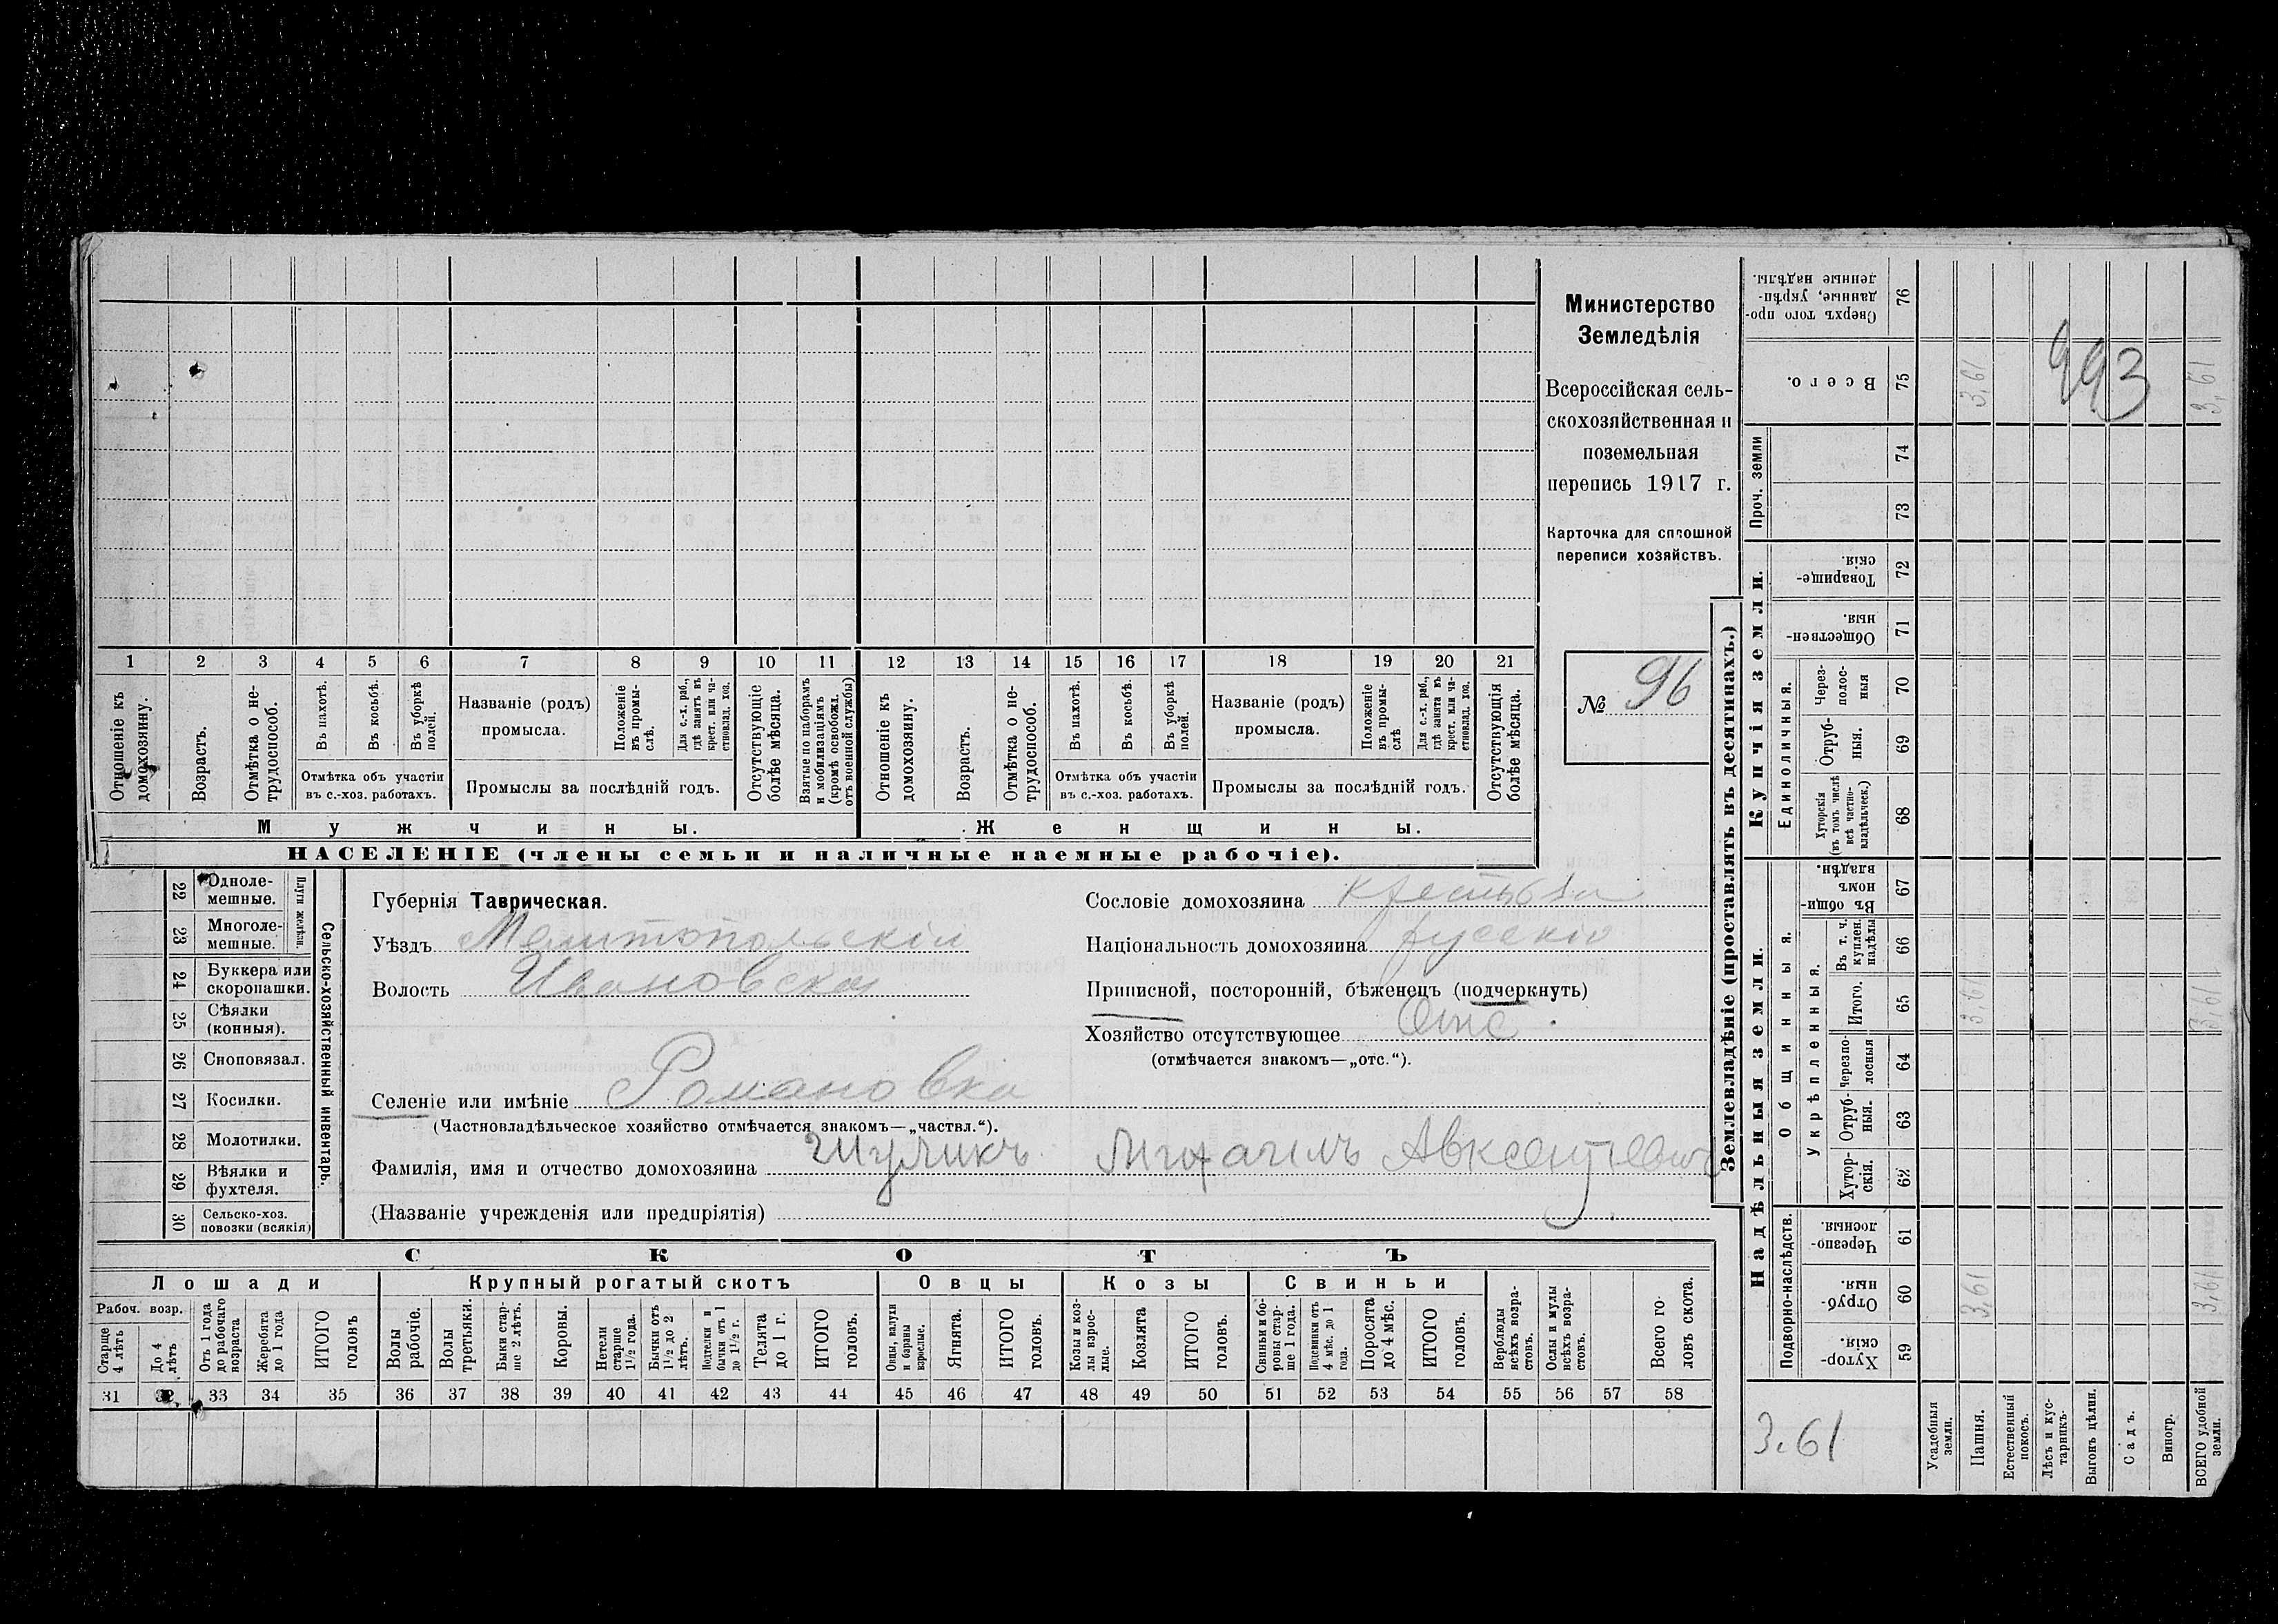 1 2 3 4 5 6 7 8 9 10 11 12 13 14 15 16 17 18 19 20 21
Отношеніе къ домохозяину.
Возрастъ.
Отмѣтка о не-
трудоспособ.
Въ пахотѣ.
Въ косьбѣ.
Въ уборкѣ полей.
Отмѣтка объ участіи
въ с.-хоз. работахъ.
Названіе (родъ)
промысла.
Положеніе
въ промы-
слѣ.
Для с.-х. раб.,
гдѣ занятъ въ
крест. или ча-
стновлад. хоз.
Промыслы за послѣдній годъ.
Отсутствующіе
болѣе мѣсяца.
Взятые по наборамъ
и мобилизаціямъ
(кромѣ освобожд.
отъ военной службы)
Отношеніе къ
домохозяину.
Возрастъ.
Отмѣтка о не-
трудоспособ.
Въ пахотѣ.
Въ косьбѣ.
Въ уборкѣ
полей.
Отмѣтка объ участіи
въ с.-хоз. работахъ.
Названіе (родъ)
промысла.
Положеніе
въ промы-
слѣ
Для с.-х. раб.,
гдѣ занята въ
крест. или ча-
стновлад. хоз.
Промыслы за послѣдній годъ.
Отсутствующія
болѣе мѣсяца.
Мужчины.
Женщины.
НАСЕЛЕНІЕ (члены семьи и наличные наемные рабочіе).
Министерство
Земледѣлія
Всероссійская сель-
скохозяйственная и
поземельная
перепись 1917 г.
Карточка для сплошной
переписи хозяйствъ.
№ 96
22 Одноле-
мешные.
23 Многоле-
мешные.
Плуги желѣзн.
24 Буккера или
скоропашки.
25 Сѣялки
(конныя).
26 Сноповязал.
27 Косилки.
28 Молотилки.
29 Вѣялки и
фухтеля.
30 Сельско-хоз.
повозки (всякія)
Сельско-хозяйственный инвентарь.
Губернія Таврическая.
Уѣздъ Мелитопольскій
Волость Ивановская
Сословіе домохозяина крестьян
Національность домохозяина русскій
Приписной, посторонній, бѣженецъ (подчеркнуть)
Хозяйство отсутствующее Отс.
(отмѣчается знакомъ—„отс.“).
Селеніе или имѣніе Романовка
(Частновладѣльческое хозяйство отмѣчается знакомъ—„частвл.“).
Фамилія, имя и отчество домохозяина Шуликъ Михаилъ Авксентіевич
(Названіе учрежденія или предпріятія)
СКОТЪ
Лошади
Рабоч. возр.
Старше
4 лѣтъ
До 4
лѣтъ
Отъ 1 года
до рабочаго
возраста
Жеребята
до 1 года
ИТОГО
головъ
Крупный рогатый скотъ
Волы
рабочіе.
Волы
третьяки.
Быки стар-
ше 2 лѣтъ.
Коровы.
Нетели
старше
1½ года.
Бычки отъ
1½ до 2
лѣтъ.
Подтелки и
бычки отъ 1
до 1½ г.
Телята
до 1 г.
ИТОГО
головъ.
Овцы
Овцы, валухи
и бараны
взрослые.
Ягнята.
ИТОГО
головъ.
Козы
Козы и коз-
лы взрос-
лые.
Козлята
ИТОГО
головъ.
Свиньи
Свиньи и бо-
ровы стар-
ше 1 года.
Подсвинки отъ
4 мѣс. до 1
года.
Поросята
до 4 мѣс.
ИТОГО
головъ.
Верблюды
всѣхъ возра-
стовъ.
Ослы и мулы
всѣхъ возра-
стовъ.
Всего го
ловъ скота.
31 32 33 34 35 36 37 38 39 40 41 42 43 44 45 46 47 48 49 50 51 52 53 54 55 56 57 58
Землевладѣніе (проставлять въ десятинахъ.)
Надѣльныя земли.
Купчія земли.
Проч. земли
Подворно-наслѣдств.
Общинныя.
Укрѣпленныя.
Единоличныя.
Сверхъ того про-
данные, укрѣп-
ленные надѣлы. 76
Всего. 75 3,61 3,61
993
74
73
Товарище-
скія. 72
Обществен-
ныя. 71
Через-
полос-
ныя 70
Отруб-
ныя. 69
Хуторскія
(въ томъ числѣ
всѣ частно-
владѣльческ.) 68
Въ общи-
номъ
владѣн. 67
Въ т. ч.
куплен.
надѣлы 66
Итого. 65 3,61 3,61
Черезпо-
лосныя 64
Отруб-
ныя. 63
Хутор-
скія. 62
Черезпо-
лосныя. 61
Отруб-
ныя. 60 3,61 3,61
Хутор-
скія. 59
3.61
Усадебныя
земли.
Пашня.
Естественный
покосъ.
Лѣсъ и кус-
тарникъ.
Выгонъ цѣлин.
Садъ.
Виногр.
ВСЕГО удобной
земли.